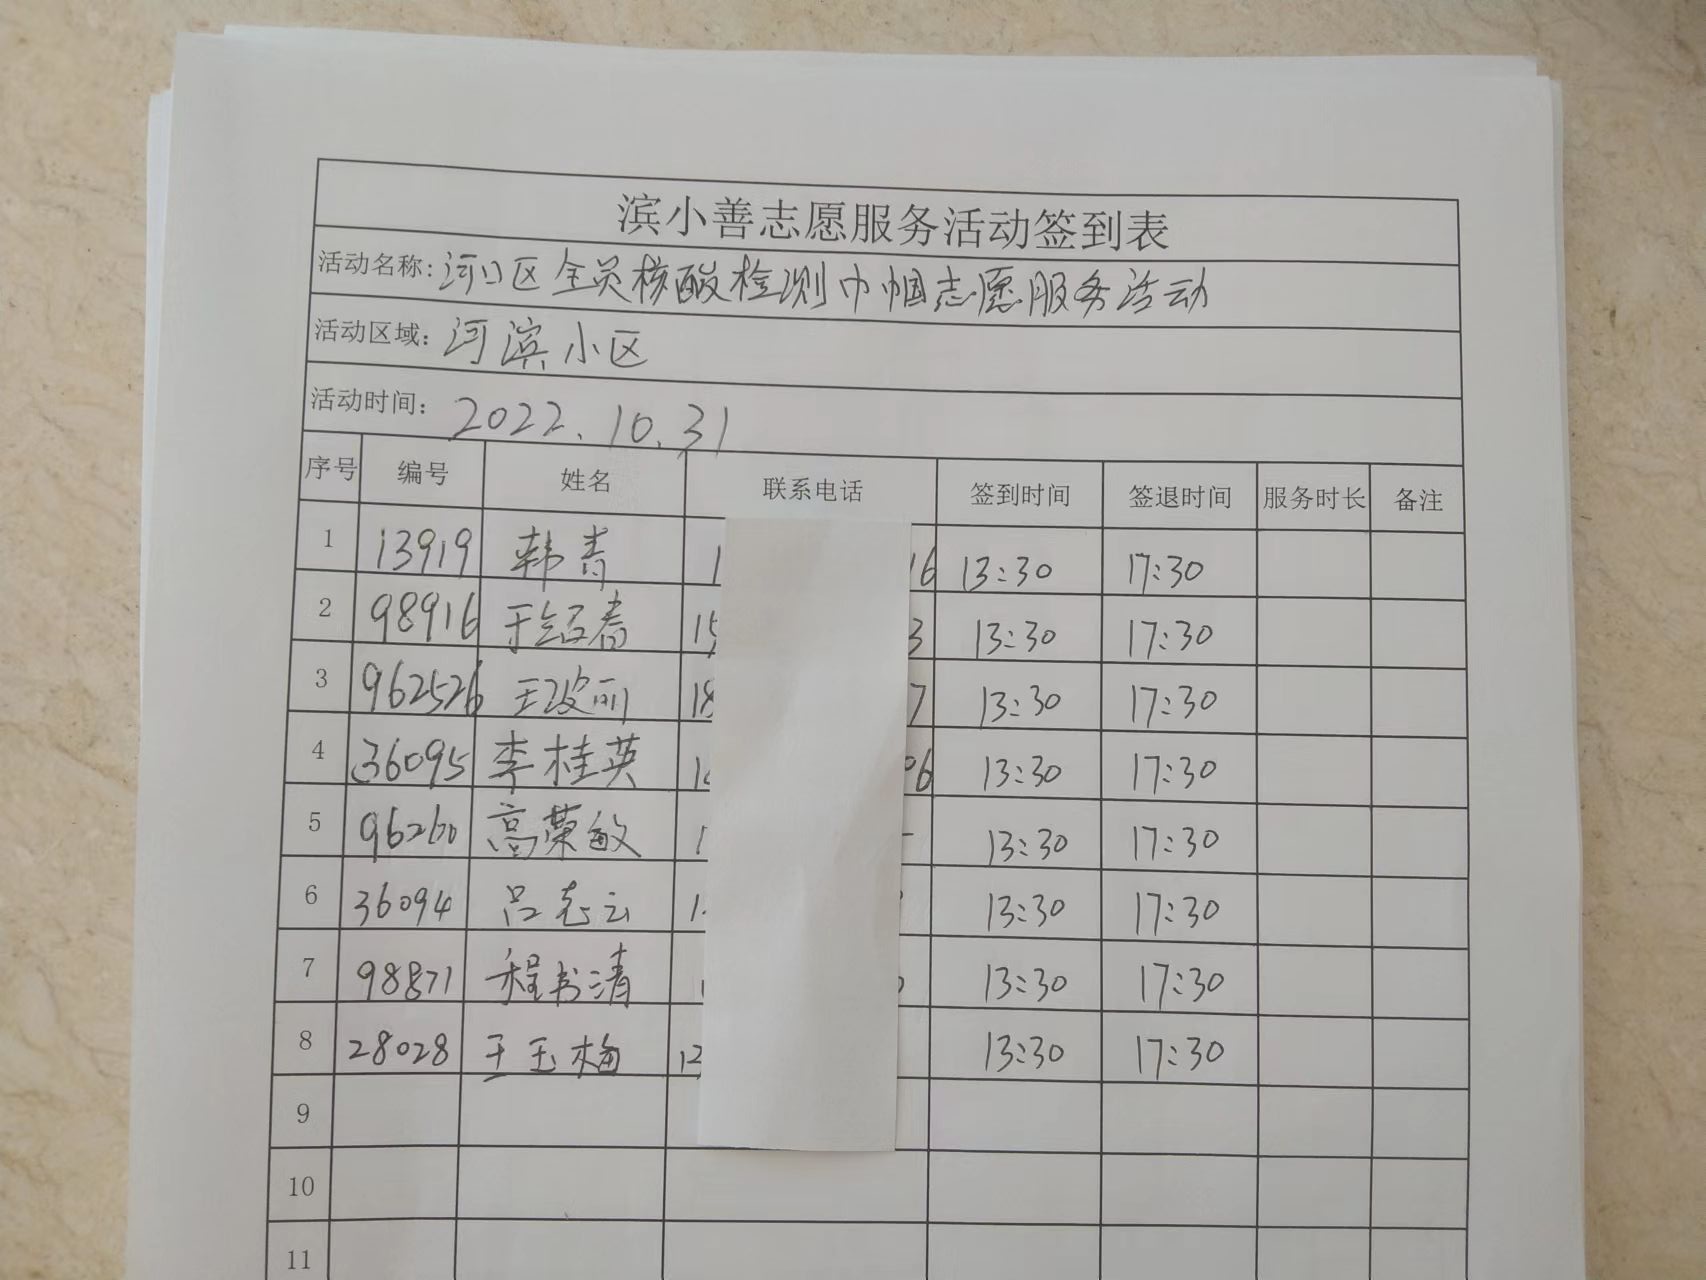 滨小善志愿服务活动签到表
活动名称: 河口区全员核酸检测巾帼志愿服务活动
活动区域: 河滨小区
活动时间: 2022.10.31
序号 编号 姓名 联系电话 签到时间 签退时间 服务时长 备注
1 13919 韩青 1 16 13:30 17:30
2 98916 于绍春 15 3 13:30 17:30
3 962526 王波丽 18 7 13:30 17:30
4 36095 李桂英 06 13:30 17:30
5 96260 高荣敏 1 13:30 17:30
6 36094 吕志云 1 13:30 17:30
7 98871 程书清 13:30 17:30
8 28028 王玉梅 13:30 17:30
9
10
11